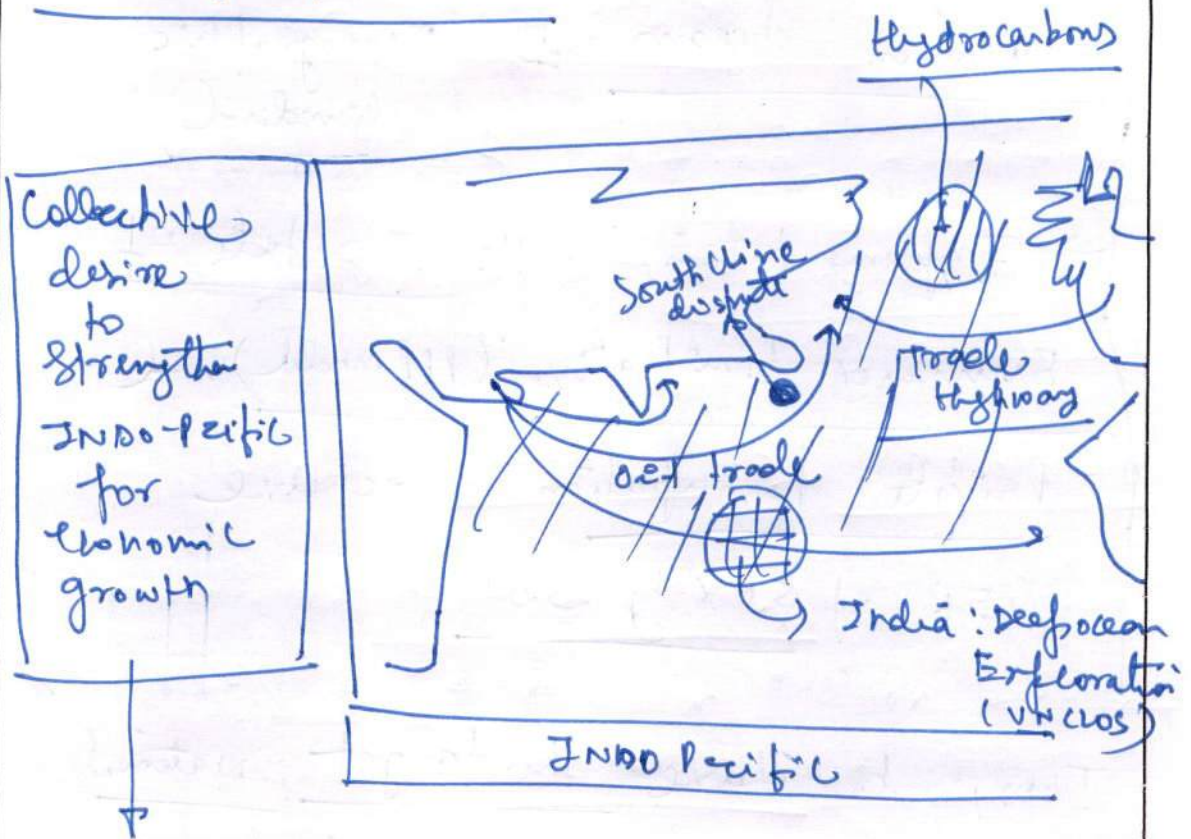 Hydrocarbons
Collective
desire
to
Strengthen
INDO-Pacific
for
economic
growth
South China
dispute
Trade
Highway
Oil Trade
India : Deep ocean
Exploration
(UNCLOS)
INDO Pacific